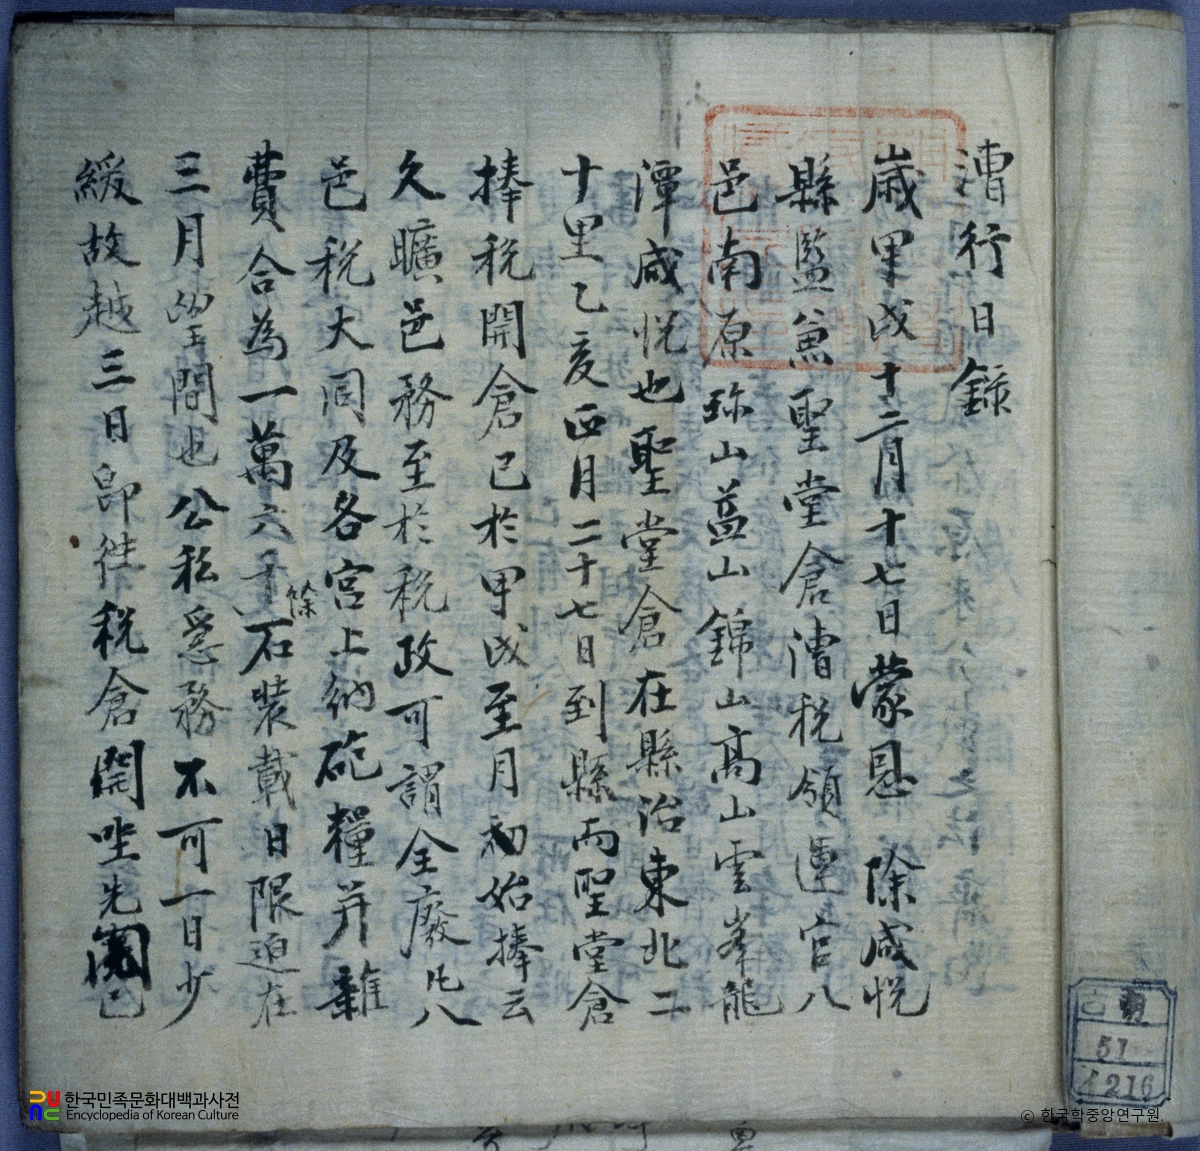 漕行日錄
歲甲戌十二月十七日蒙恩 除咸悅
縣監兼聖堂倉漕稅領運官八
邑南原珎山益山錦山高山雲峯龍
潭咸悅也聖堂倉在縣治東北二
十里乙亥正月二十七日到縣而聖堂倉
捧稅開倉已於甲戌至月初始捧云
久曠邑務至於稅政可謂全廢凡八
邑稅大同及各宮上納砲糧并雜
費合為一萬六千餘石裝載日限迫在
三月望間也公私急務不可一日少
緩故越三日即往稅倉開坐先
한국민족문화대백과사전
Encyclopedia of Korean Culture
古
51
216
© 한국학중앙연구원